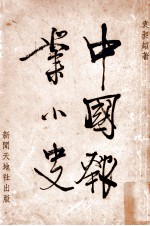 袁昶超著
中國報
業小史
新聞天地社出版